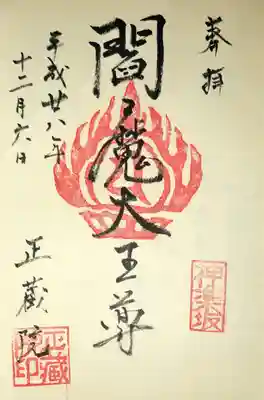 奉拝
閻魔大王尊
平成廿八年
十二月六日
正蔵院
神楽坂
正蔵院印